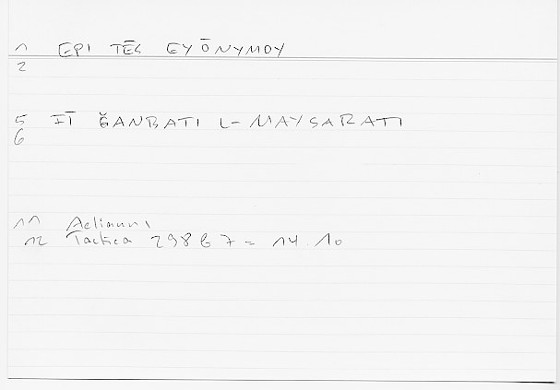 1 EPI TĒS EYŌNYMOY
2
5 FĪ ǦANBATI L-MAYSARATI
6
11 Aelianus
12 Tactica 298 6 7 = 14.10